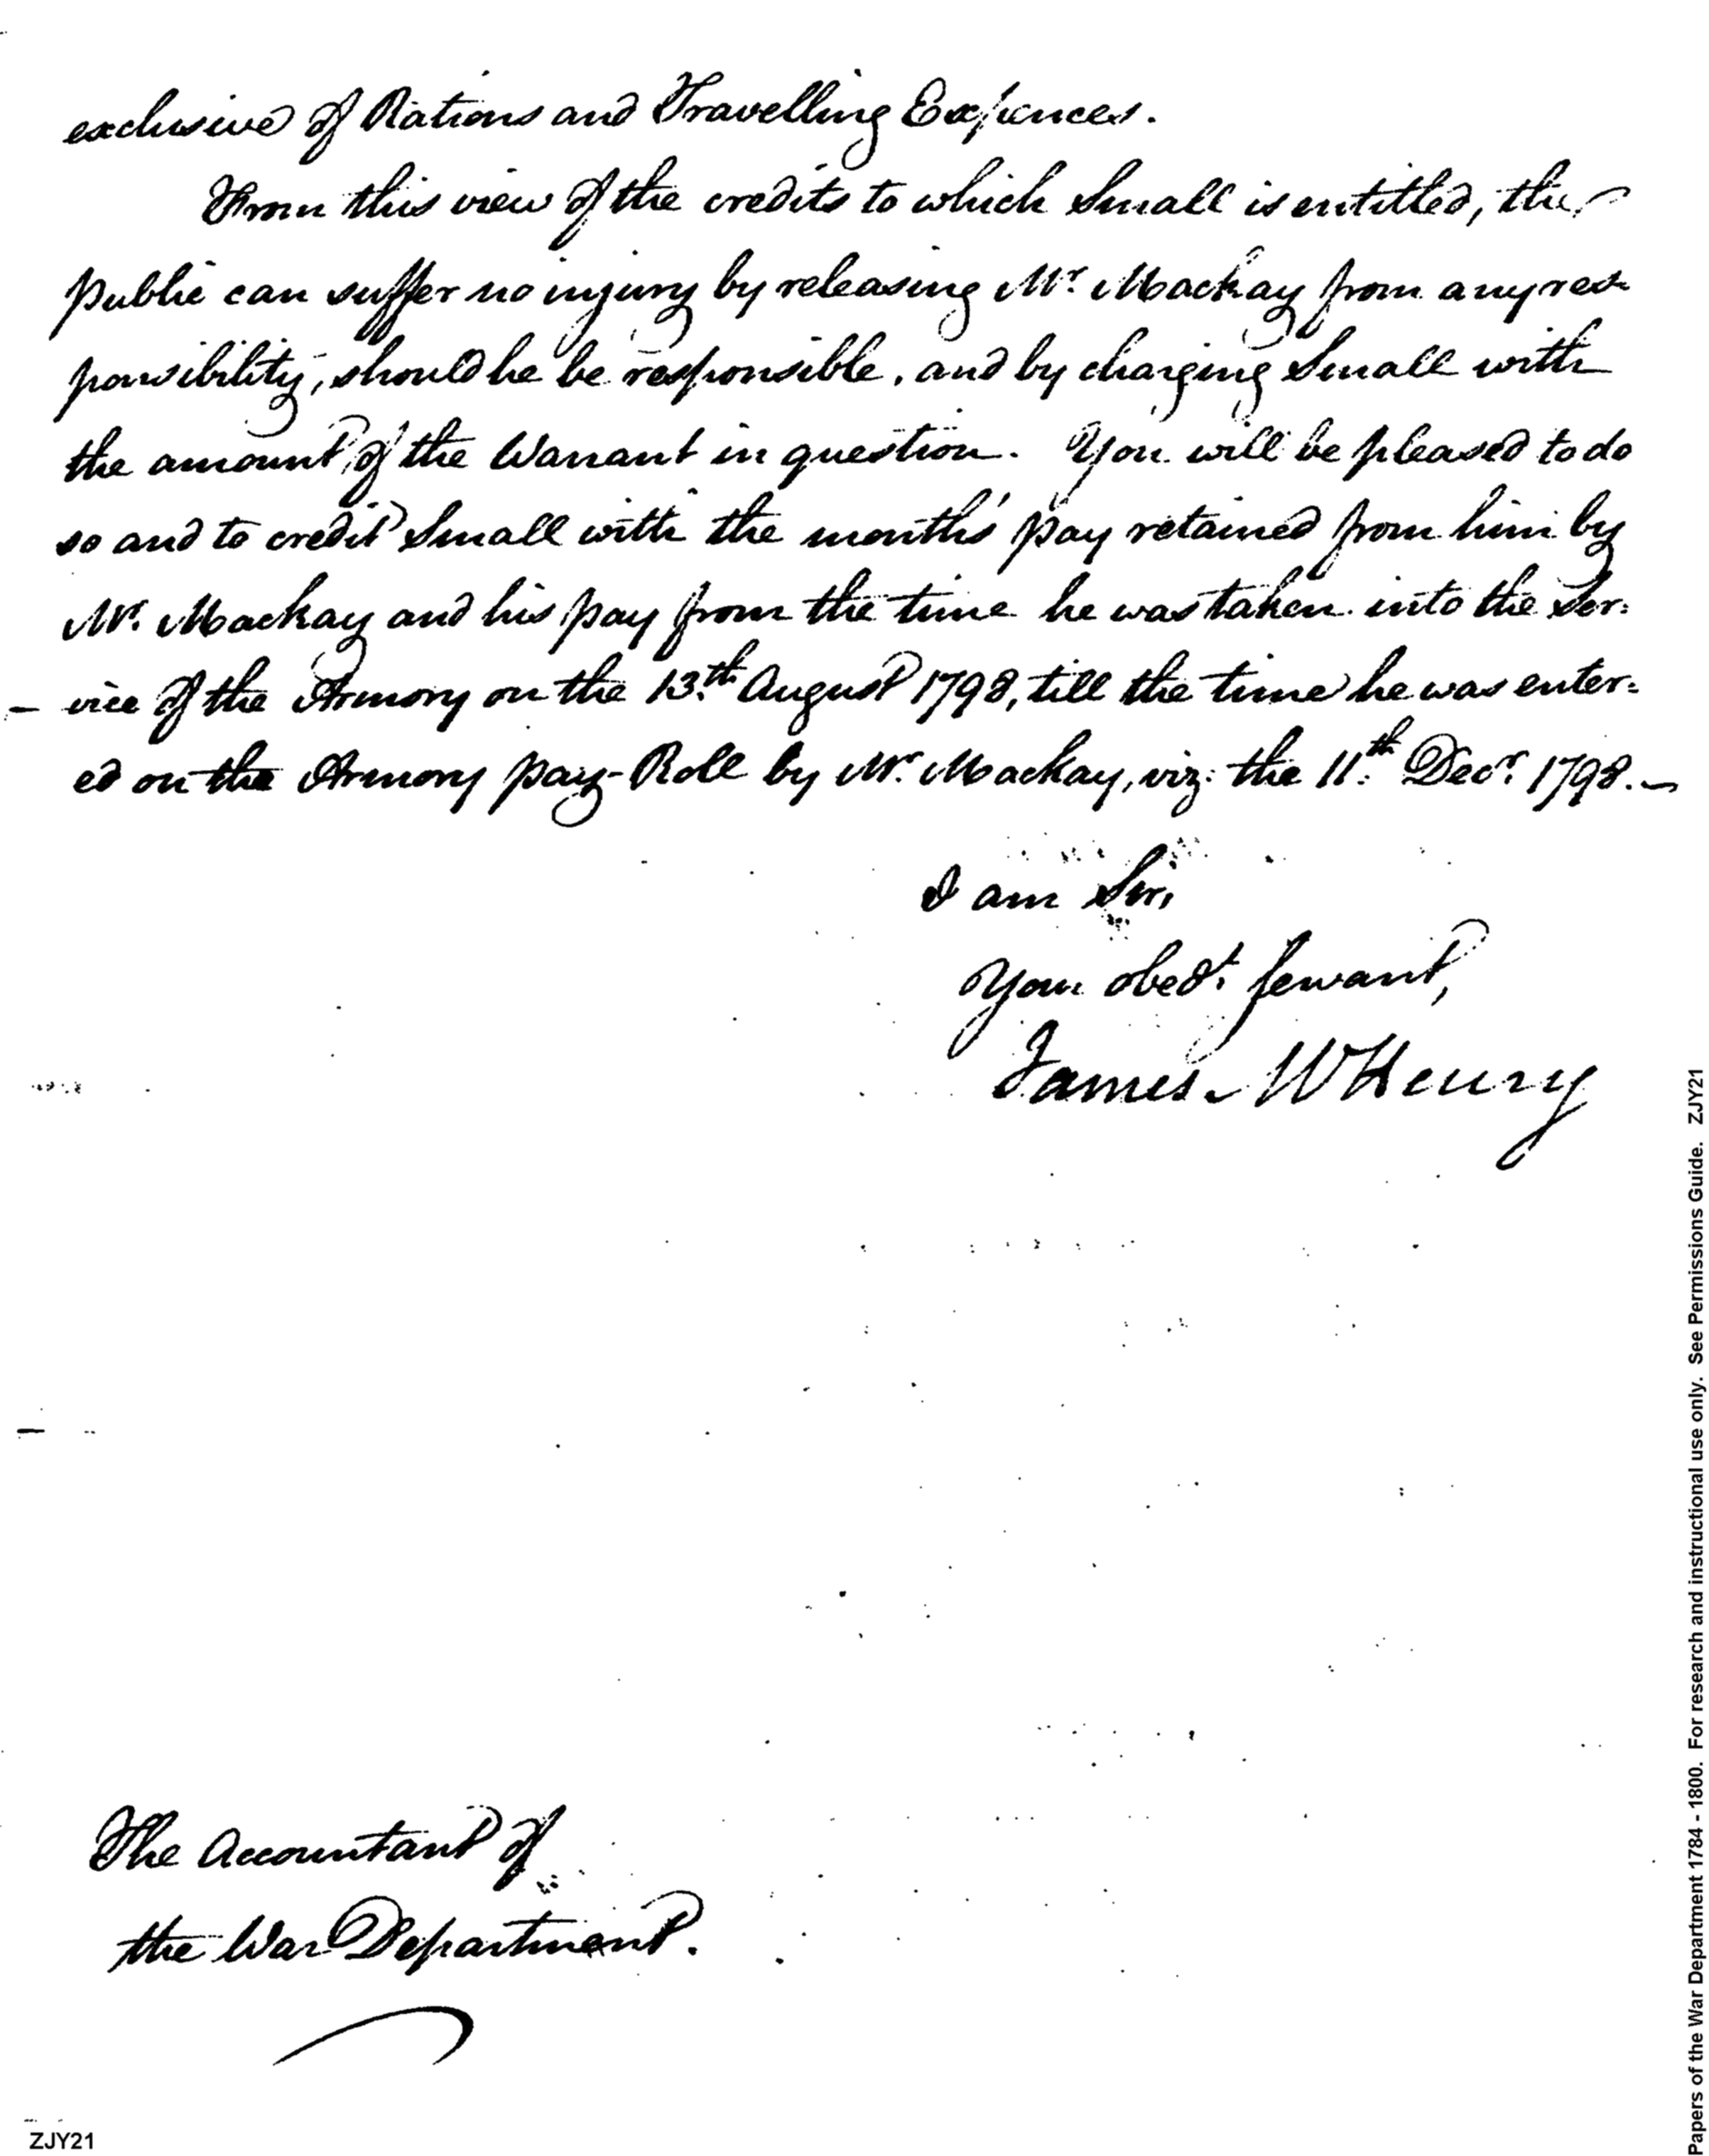 exclusive of Rations and Travelling Expences.
From this view of the credits to which Small is entitled, the
public can suffer no injury by releasing Mr. Mackay from any res-
ponsibility, should he be responsible, and by charging Small with
the amount of the Warrant in question. You will be pleased to do
so and to credit Small with the month's pay retained from him by
Mr. Mackay and his pay from the time he was taken into the Ser=
vice of the Armory on the 13.th August 1798, till the time he was enter=
ed on the Armory pay-Role by Mr. Mackay, viz: the 11.th Decr. 1798.—
I am Sir,
Your obedt. servant,
James McHenry
The Accountant of
the War Department.
ZJY21
Papers of the War Department 1784 - 1800. For research and instructional use only. See Permissions Guide. ZJY21